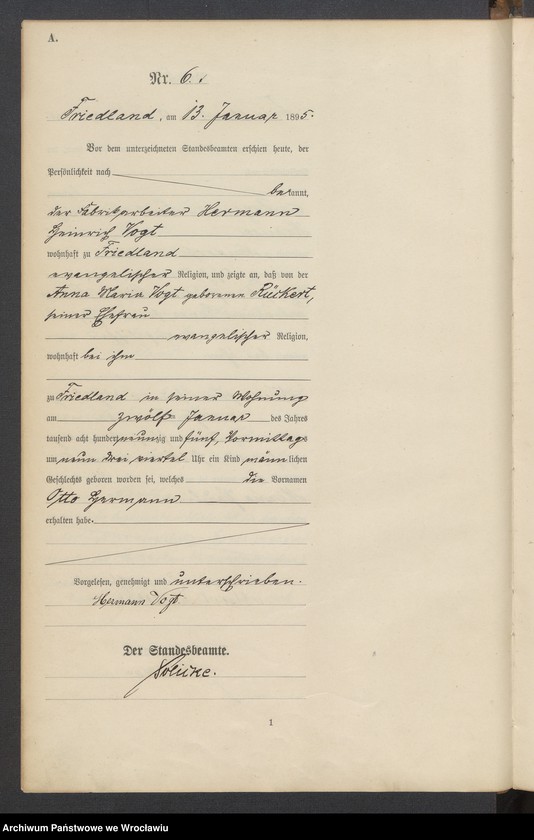 A.
Nr. 6.
Friedland, am 13. Januar 1895.
Vor dem unterzeichneten Standesbeamten erschien heute, der
Persönlichkeit nach
bekannt,
der Fabrikarbeiter Hermann
Heinrich Vogt
wohnhaft zu Friedland
evangelischer Religion, und zeigte an, daß von der
Anna Maria Vogt geborenen Rückert,
seiner Ehefrau
evangelischer Religion,
wohnhaft bei ihm
zu Friedland in seiner Wohnung
am zwölf Januar des Jahres
tausend acht hundert neunzig und fünf, Vormittags
um neun drei viertel Uhr ein Kind männlichen
Geschlechts geboren worden sei, welches die Vornamen
Otto Hermann
erhalten habe.
Vorgelesen, genehmigt und unterschrieben.
Hermann Vogt
Der Standesbeamte.
1
Archiwum Państwowe we Wrocławiu